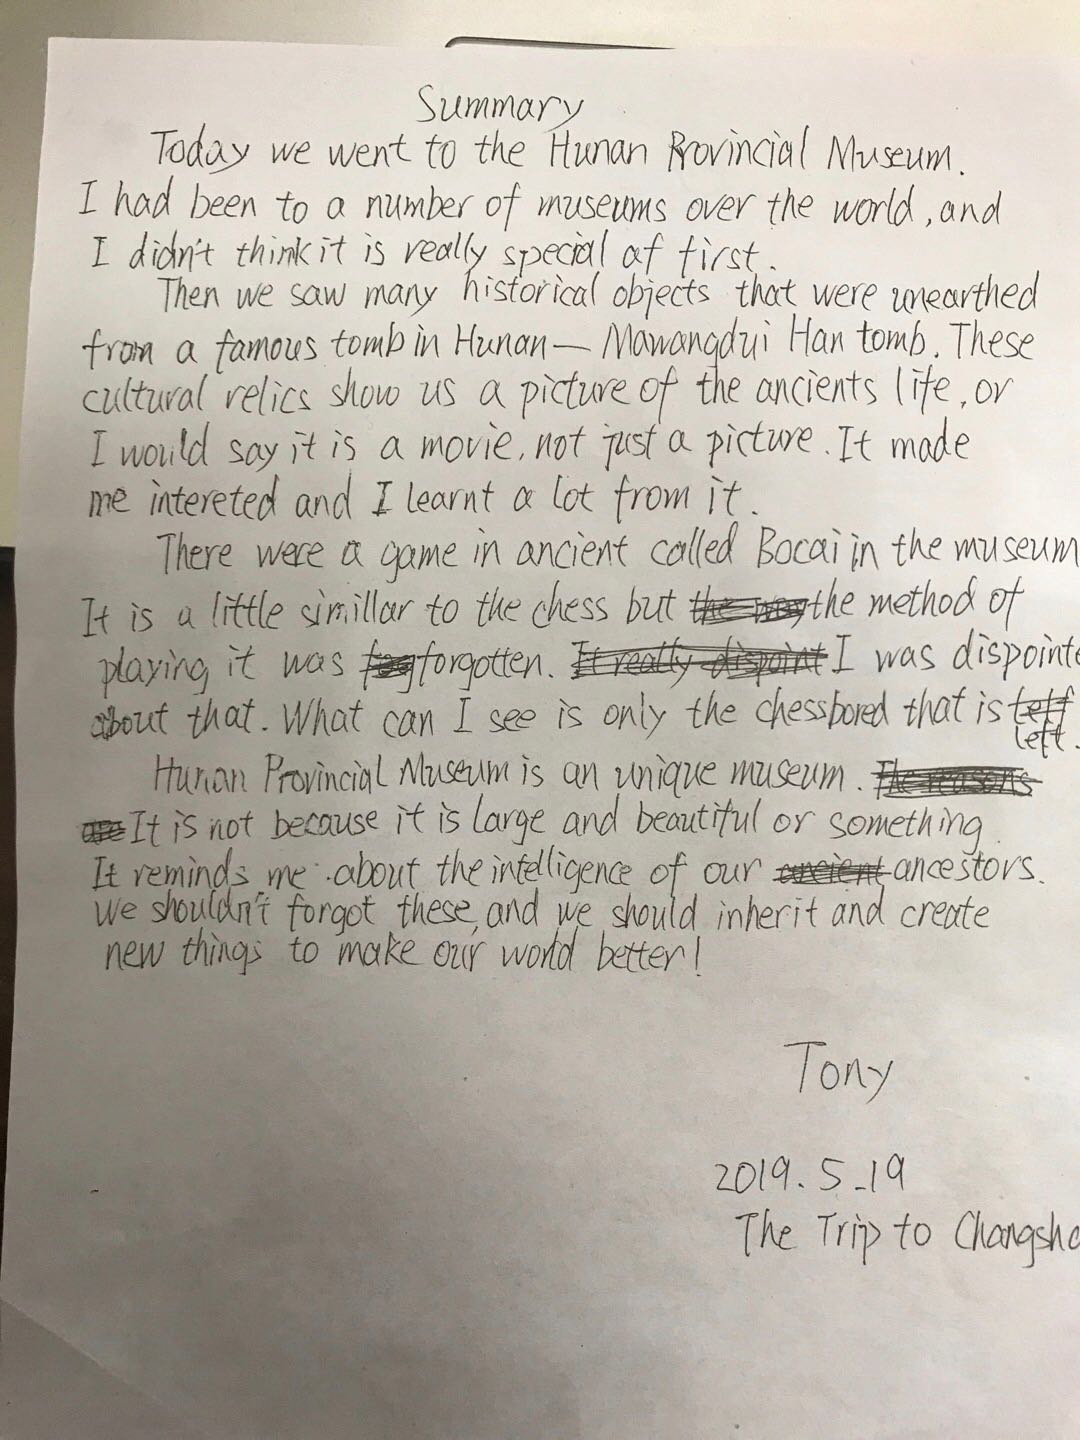 Summary
Today we went to the Hunan Provincial Museum.
I had been to a number of museums over the world, and
I didn't think it is really special at first.
Then we saw many historical objects that were unearthed
from a famous tomb in Hunan — Mawangdui Han tomb. These
cultural relics show us a picture of the ancients life, or
I would say it is a movie, not just a picture. It made
me intereted and I learnt a lot from it.
There were a game in ancient called Bocai in the museum
It is a little simillar to the chess but the way the method of
playing it was forgotten. It really dispoint I was dispointe
about that. What can I see is only the chessbored that is
left.
Hunan Provincial Museum is an unique museum. The reasons
are It is not because it is large and beautiful or something.
It reminds me about the intelligence of our ancient ancestors.
We shouldn't forgot these, and we should inherit and create
new things to make our world better!
Tony
2019.5.19
The Trip to Changsha